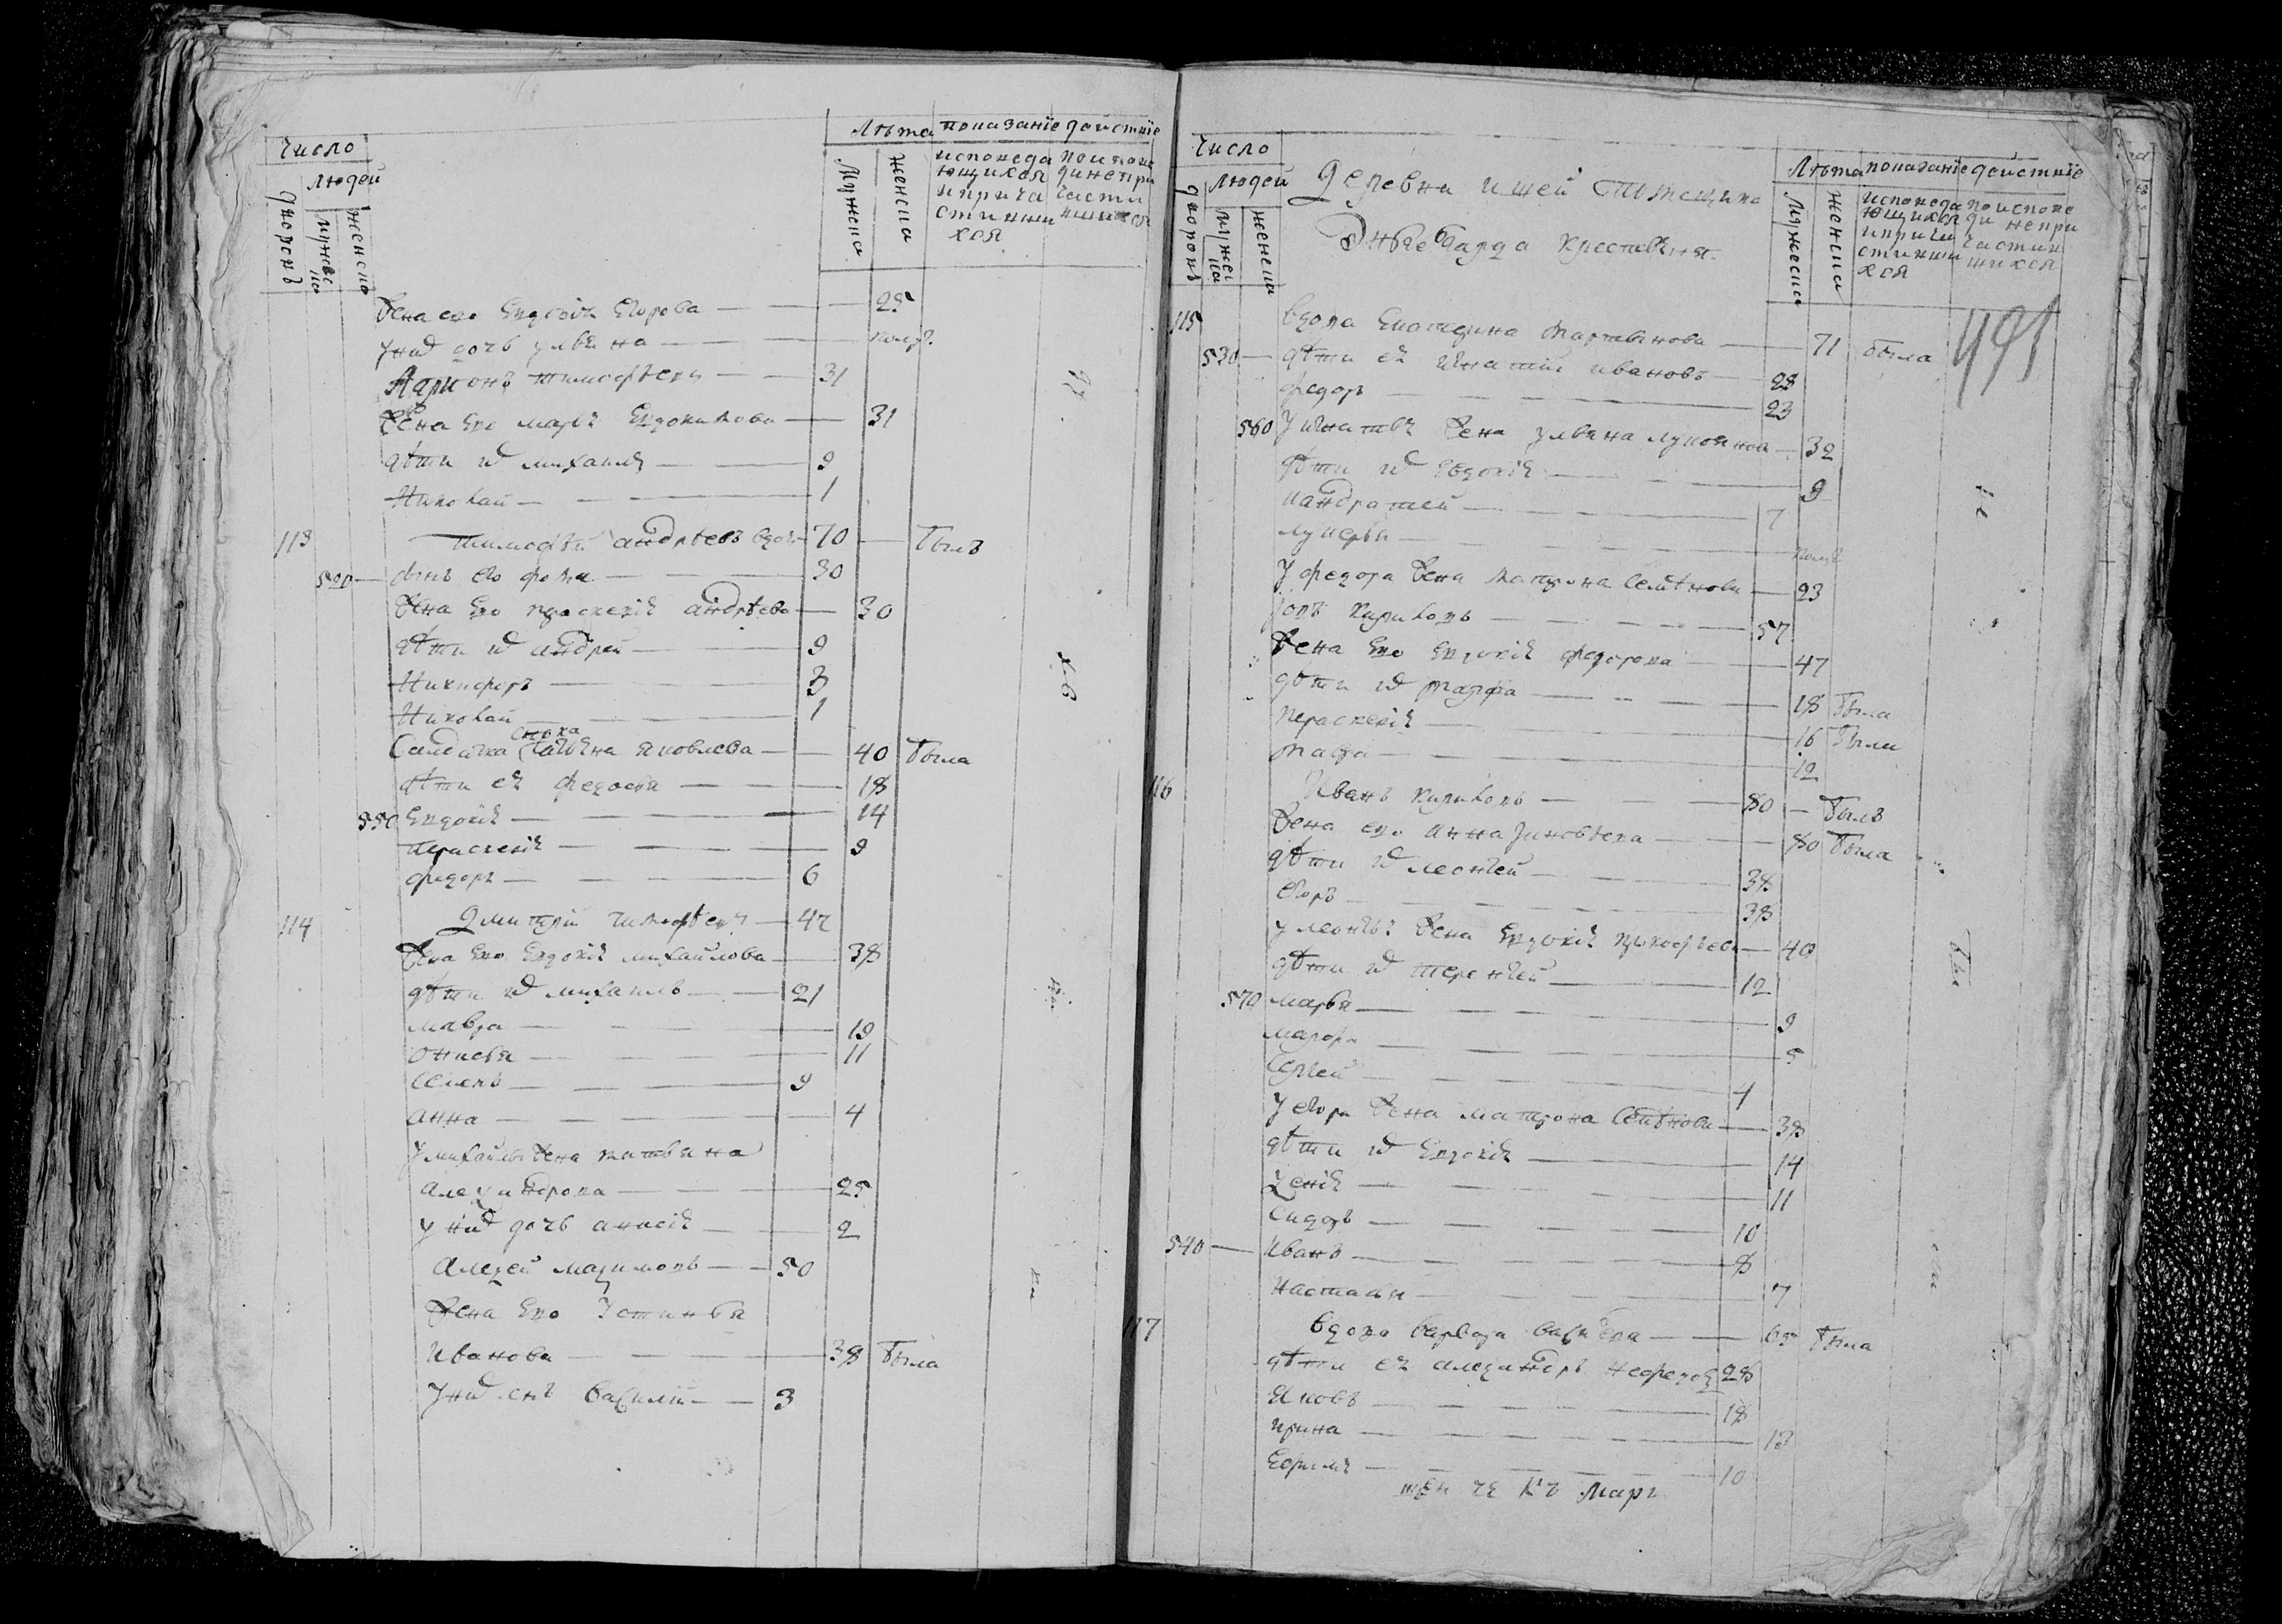 Число
Людей
дворовъ
мужеска
женска
Лѣта
Мужеска
Женска
показанїе действїе
исповеда
ющихся
и прича
стивши
хся
жена ево Евдокия Егорова — 25
у них дочь ульяна — полг.
Ларионъ тимофеевъ — 31
жена ево марья Евдокимова — 31
дѣти их михаилъ — 9
Николай — 1
113 тимофѣй андрѣевъ вдовъ 70 — былъ
520 — сынъ его фома — 30
жена ево праскевия андрѣева — 30
дѣти их андрей — 9
Никифоръ — 3
Николай — 1
сноха
Салдатка татьяна яковлева — 40 была
дѣти ея федосья — 18
550 Евдокия — 14
праскевия — 9
федоръ — 6
114 Дмитрий тимофѣевъ — 42
жена ево Евдокия михайлова — 38
дѣти их михаилъ — 21
мавра — 19
онисья — 11
семенъ — 9
анна — 4
у михайлы жена татьяна
александрова — 25
у них дочь анисия — 2
Алексей максимовъ — 50
жена ево Устинья
Иванова — 38 была
у них снъ василий — 3
Число
Людей
дворовъ
мужеска
женска
Деревни
крестьяня
Лѣта
Мужеска
Женска
показанїе действїе
исповеда
ющихся
и причи
стивши
хся
491
115 вдова Екатерина мартынова — 71 была
530 — дѣти ея игнатий ивановъ — 28
федоръ — 23
560 у игнатья жена ульяна лукоянова — 32
дѣти их евдокия — 9
кандратей — 7
лукерья — полг
у федора жена матрона семѣнова — 23
кириловъ — 57
жена ево Евдокия федорова — 47
дѣти их марфа — 18 была
праскевия — 16 была
мавра — 12
116 Иванъ кириловъ — 80 — былъ
жена ево анна зиновьева — 80 была
дѣти их леонтей — 38
егоръ — 38
у леонтья жена Евдокия — 40
дѣти их терентей — 12
570 марья — 9
марфа — 5
сергей — 4
у егора жена матрона семѣнова — 38
дѣти их Евдокия — 14
ксения — 11
сидоръ — 10
540 — иванъ — 8
настасья — 7
117 вдова варвара васильева — 65 была
дѣти ея александръ нефедов 28
яковъ — 18
ирина — 13
Ефимъ — 10